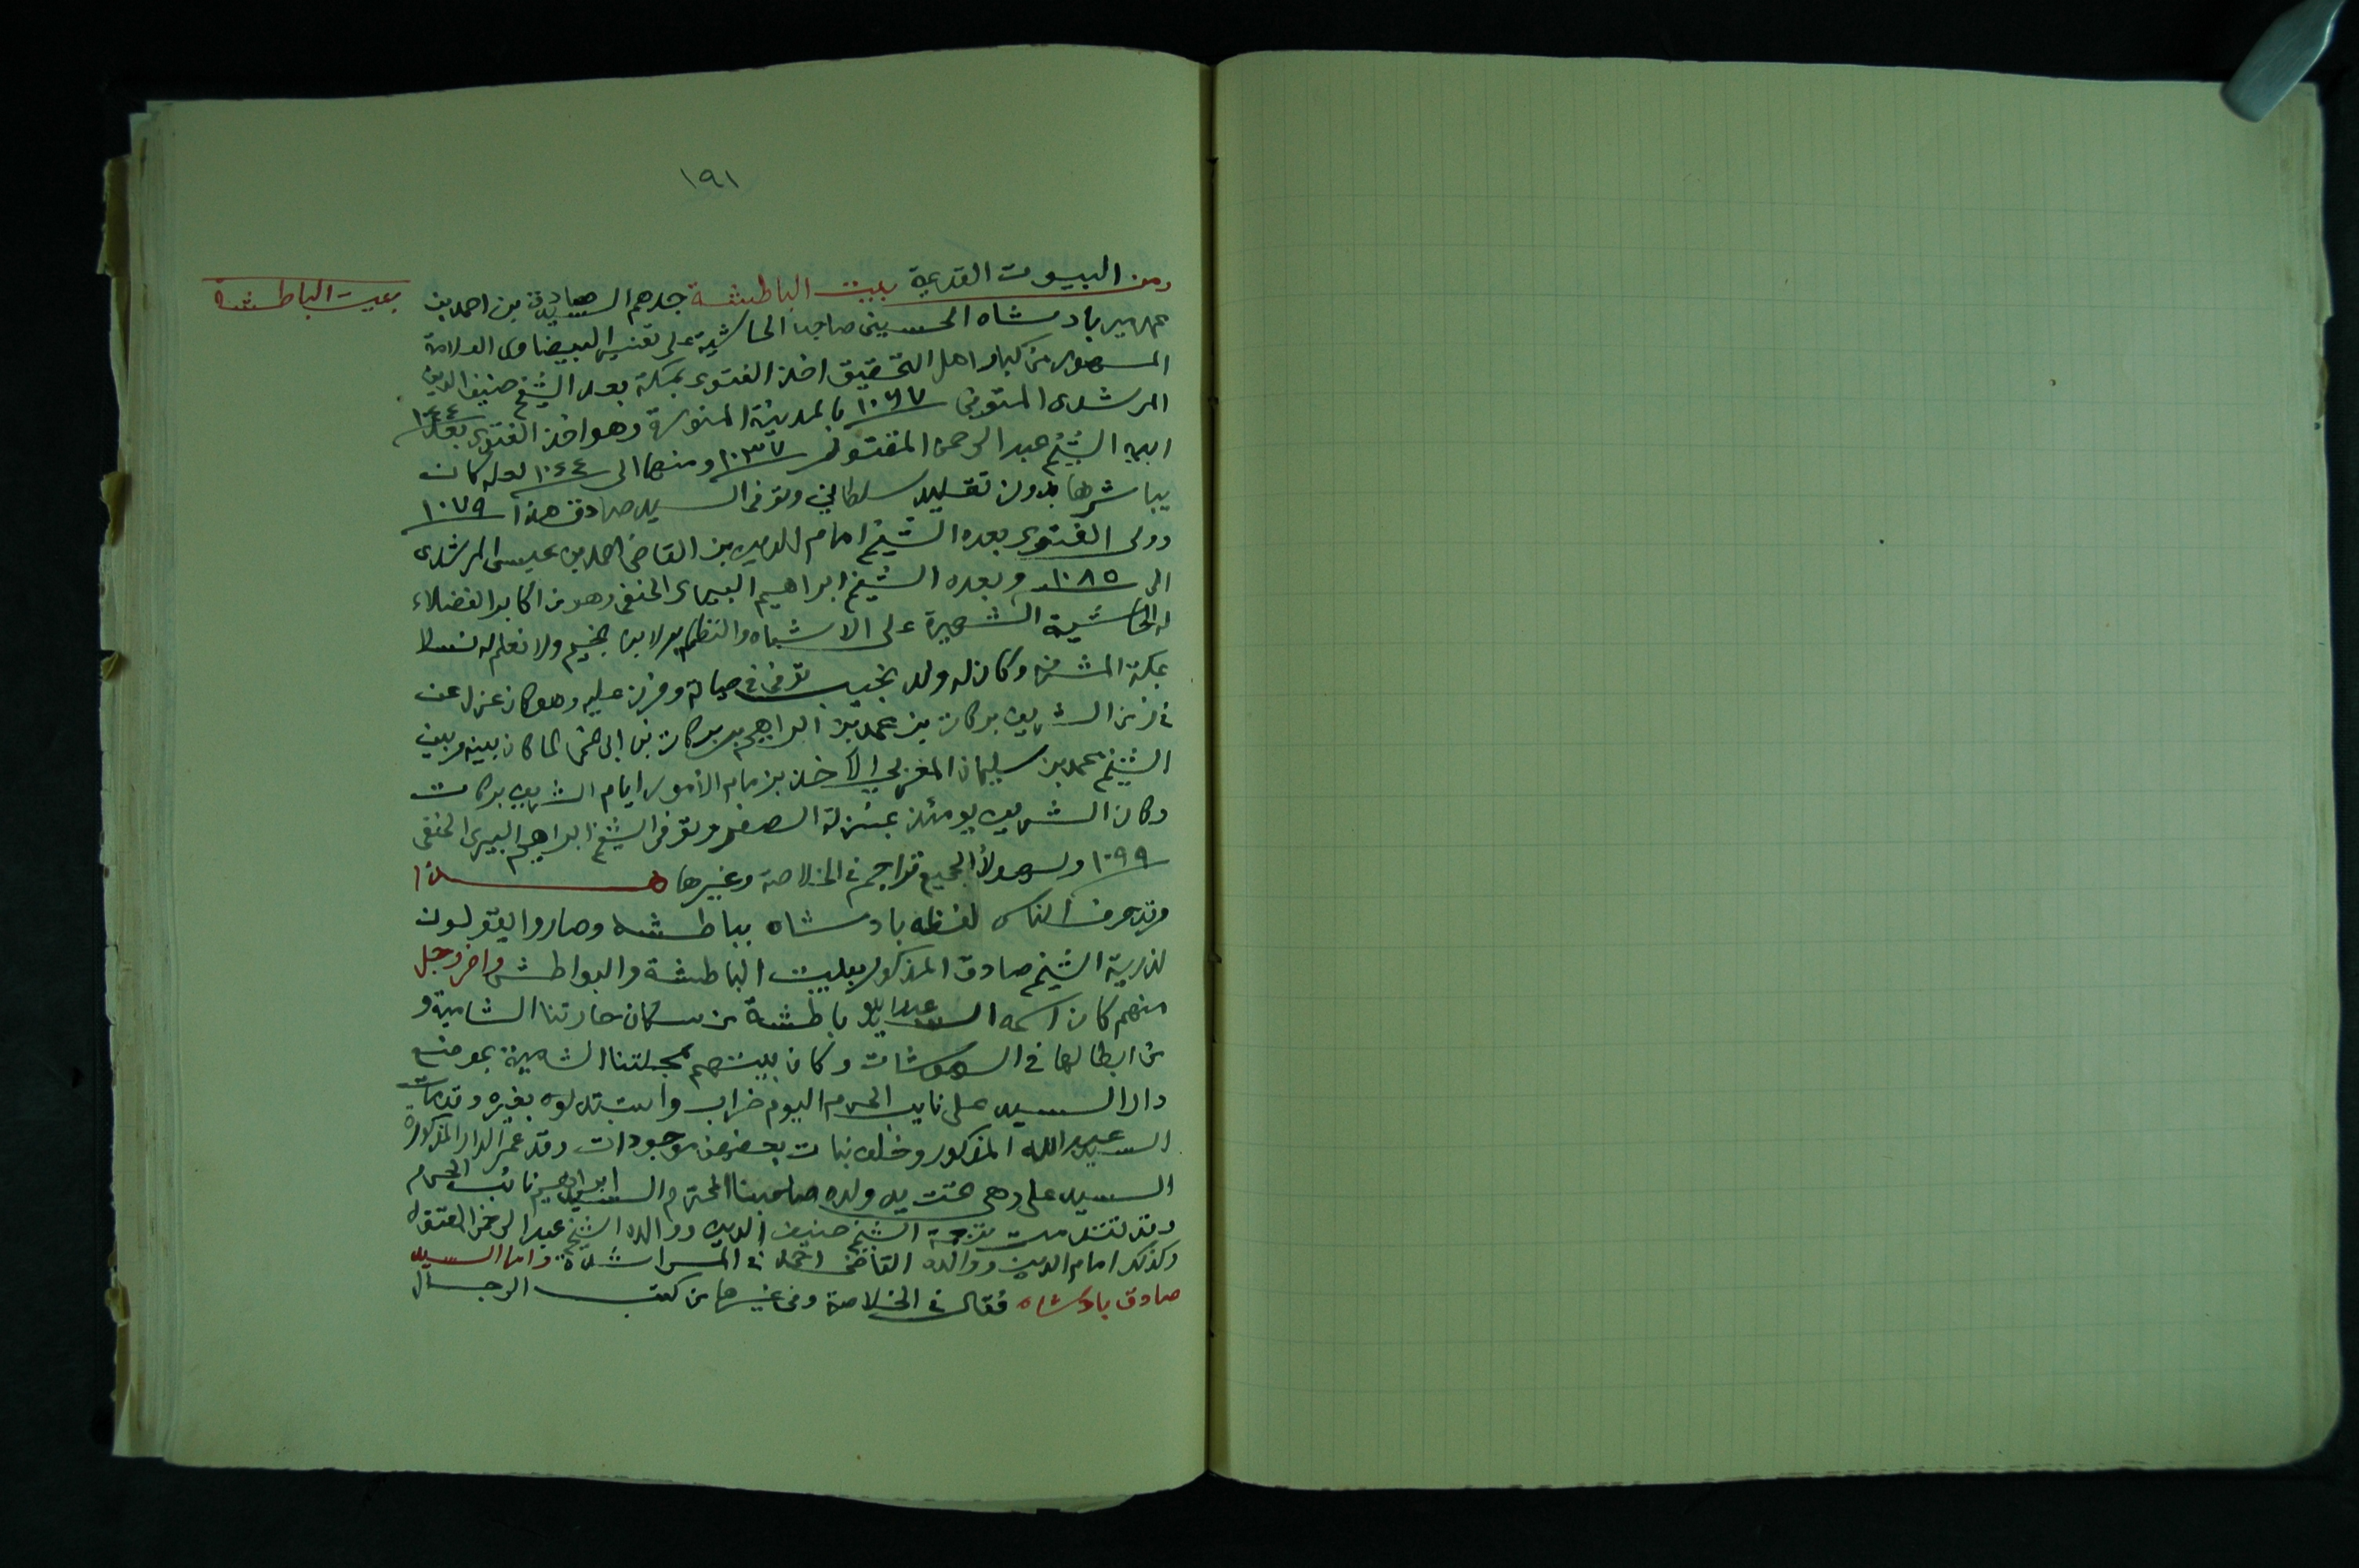 ١٩١
بيت الباطشة
ومن البيوت القديمة بيت الباطشة جدهم السيد صادق بن احمد بن
محمد مير بادشاه الحسيني صاحب الحاشية على تفسير البيضاوى العلامة
المشهور من كبار اهل التحقيق اخذ الفتوى بمكة بعد الشيخ حنيف الدين
المرشدى المتوفى ١٠٦٧ بالمدينة المنورة وهو اخذ الفتوى بعد ١٠٤٤
ابيه الشيخ عبد الرحمن المقتول ١٠٣٧ ومنها الى ١٠٤٤ لعله كان
يباشرها بدون تقليد سلطاني وتوفى السيد صادق هذا ١٠٧٩
وولى الفتوى بعده الشيخ امام الدين بن القاضى احمد بن عيسى المرشدى
الى ١٠٨٥ وبعده الشيخ ابراهيم البيرى الحنفى وهو من اكابر الفضلاء
له الحاشية الشهيرة على الاشباه والنظاير لابن نجيم ولا نعلم له نسلا
بمكة المشرفة وكان له ولد نجيب توفى في حياته وحزن عليه وهو كان عزل عن
في زمن الشريف بركات بن محمد بن ابراهيم بن بركات بن ابى نمى لما كان بينه وبين
الشيخ محمد بن سليمان المغربي الآخذ بزمام الأمور ايام الشريف بركات
وكان الشريف يومئذ بمنزلة الصفر وتوفى الشيخ ابراهيم البيرى الحنفى
١٠٩٩ ولهولاء الجميع تراجم في الخلاصة وغيرها هذا
وقد حرف الناس لفظه بادشاه بباطشه وصاروا يقولون
لذرية الشيخ صادق المذكور بيت الباطشة والبواطش واخر رجل
منهم كان اسمه السيد عبد الله باطشة من سكان حارتنا الشامية و
من ابطالها في الهوشات وكان بيتهم بمحلتنا الشامية بموضع
دار السيد على نايب الحرم اليوم خراب واستبدلوه بغيره وقد مات
السيد عبد الله المذكور وخلف بنات بعضهن موجودات وقد عمر الدار المذكورة
السيد على وهي تحت يد ولده صاحبنا المحترم السيد ابراهيم نائب الحرم
وقد تقدمت ترجمة الشيخ حنيف الدين ووالده الشيخ عبد الرحمن المقتول
وكذلك امام الدين ووالده القاضى احمد في المراشدة واما السيد
صادق بادشاه فقال في الخلاصة وفى غيرها من كتب الرجال